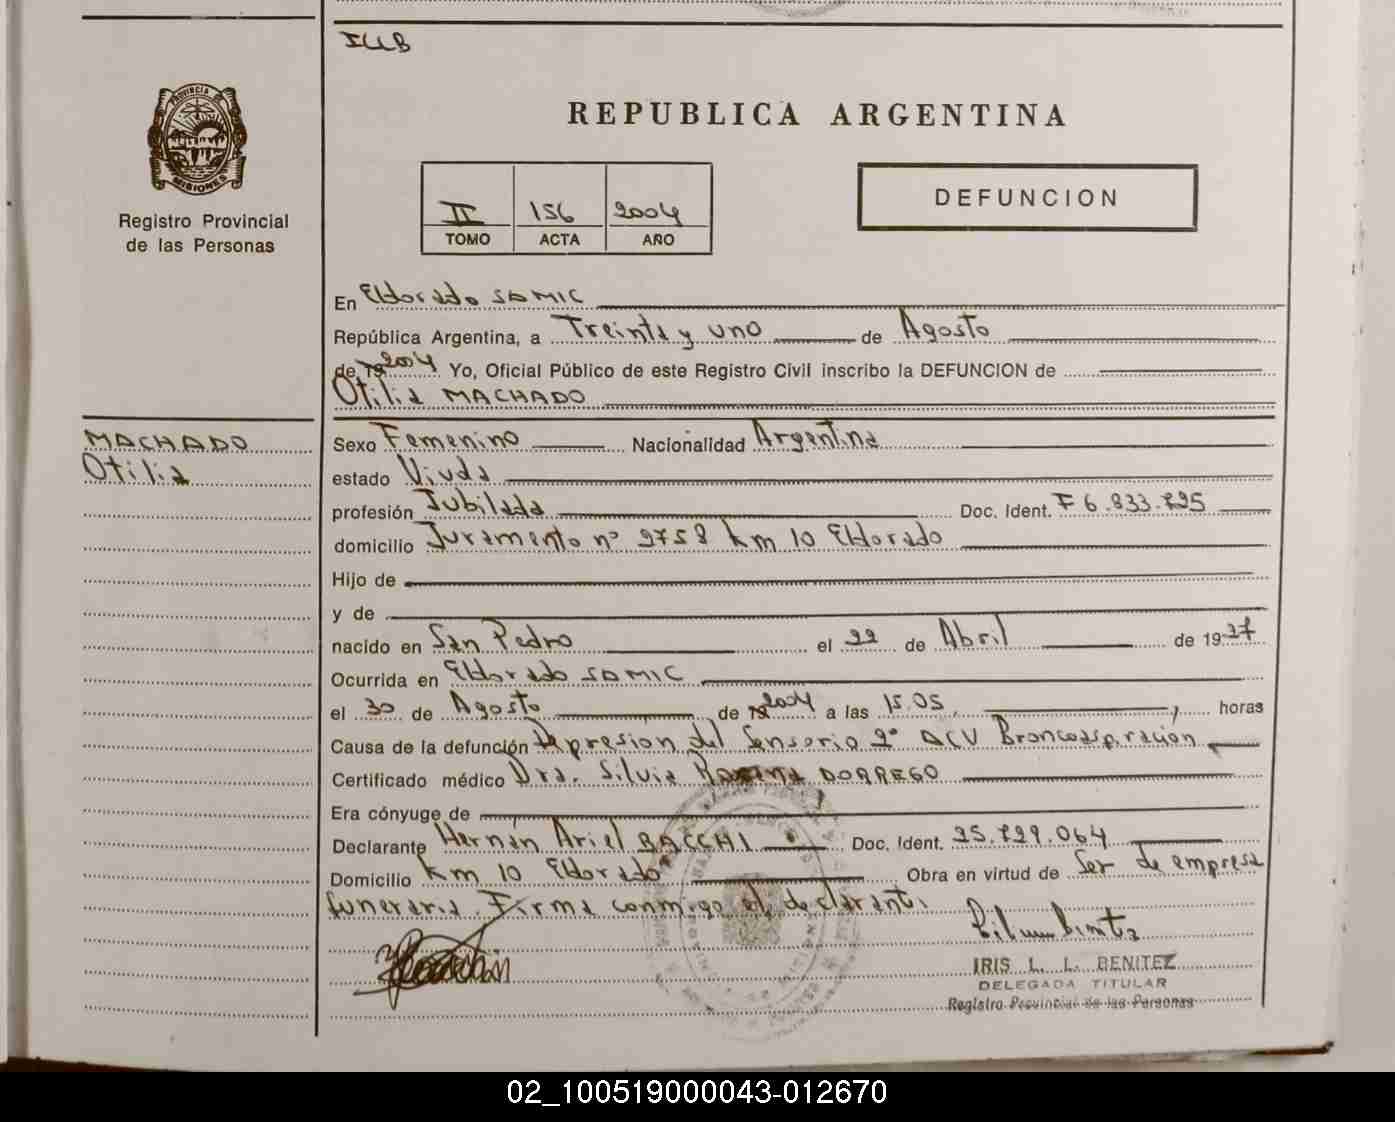 ILLB
PROVINCIA DE
MISIONES
REPUBLICA ARGENTINA
II 156 2004
TOMO ACTA AÑO
DEFUNCION
Registro Provincial
de las Personas
En Eldorado SAMIC
República Argentina, a Treinta y uno de Agosto
de 19 2004 Yo, Oficial Público de este Registro Civil inscribo la DEFUNCION de
Otilia MACHADO
MACHADO
Otilia
Sexo Femenino Nacionalidad Argentina
estado Viuda
profesión Jubilada Doc. Ident. F 6.833.795
domicilio Juramento nº 2758 km 10 Eldorado
Hijo de
y de
nacido en San Pedro el 22 de Abril de 1927
Ocurrida en Eldorado SAMIC
el 30 de Agosto de 19 2004 a las 15.05, horas
Causa de la defunción Depresion del Sensorio 2º ACV Broncoaspiración
Certificado médico Dra. Silvia Karina DORREGO
Era cónyuge de
Declarante Hernán Ariel BACCHI Doc. Ident. 25.729.064
Domicilio km 10 Eldorado Obra en virtud de Ser de empresa
funeraria. Firma conmigo el declarante
IRIS L. L. BENITEZ
DELEGADA TITULAR
Registro Provincial de las Personas
02_100519000043-012670